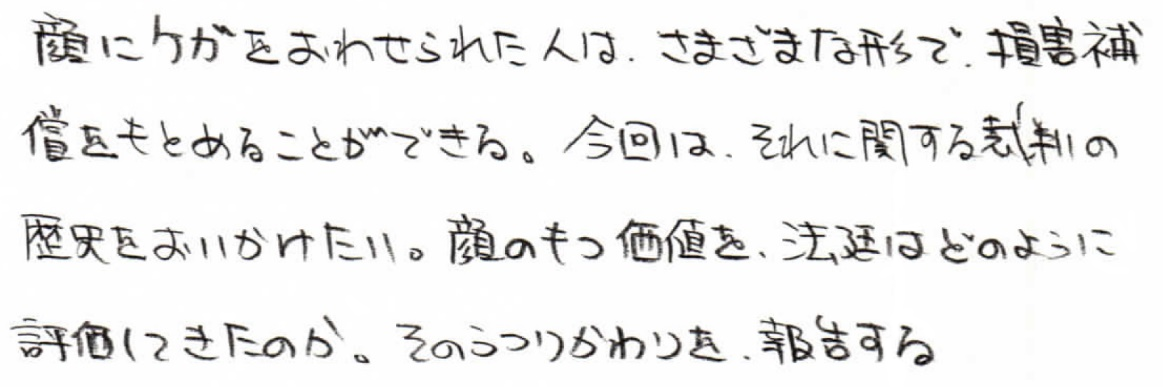 顔にケガをおわせられた人は、さまざまな形で、損害補
償をもとめることができる。今回は、それに関する裁判の
歴史をおいかけたい。顔のもつ価値を、法廷はどのように
評価してきたのか。そのうつりかわりを、報告する